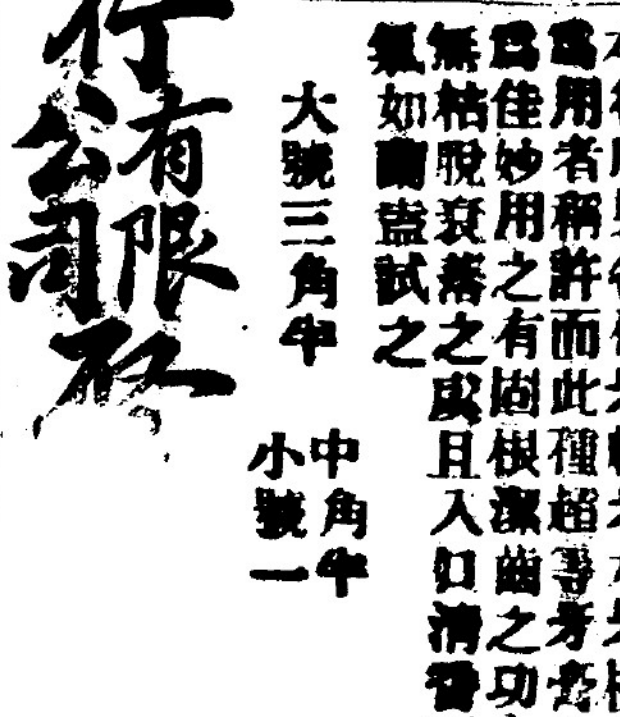 爲用者稱許而此種超等牙膏
爲佳妙用之有固根潔齒之功
無枯脫衰落之虞且入口清香
氣如蘭盍試之
大號三角半
中角半
小號一
有限
行公司